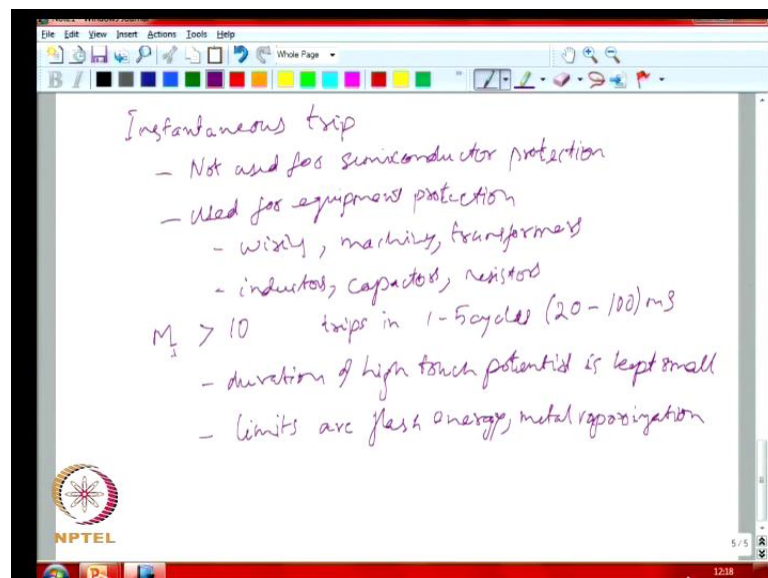 File Edit View Insert Actions Tools Help
Whole Page
B I
Instantaneous trip
- Not used for semiconductor protection
- Used for equipment protection
- wiring, machines, transformers
- inductors, capactors, resistors
M_I > 10 trips in 1-5 cycles (20-100) ms
- duration of high touch potential is kept small
- limits arc flash energy, metal vaporization
NPTEL
5/5
12:18